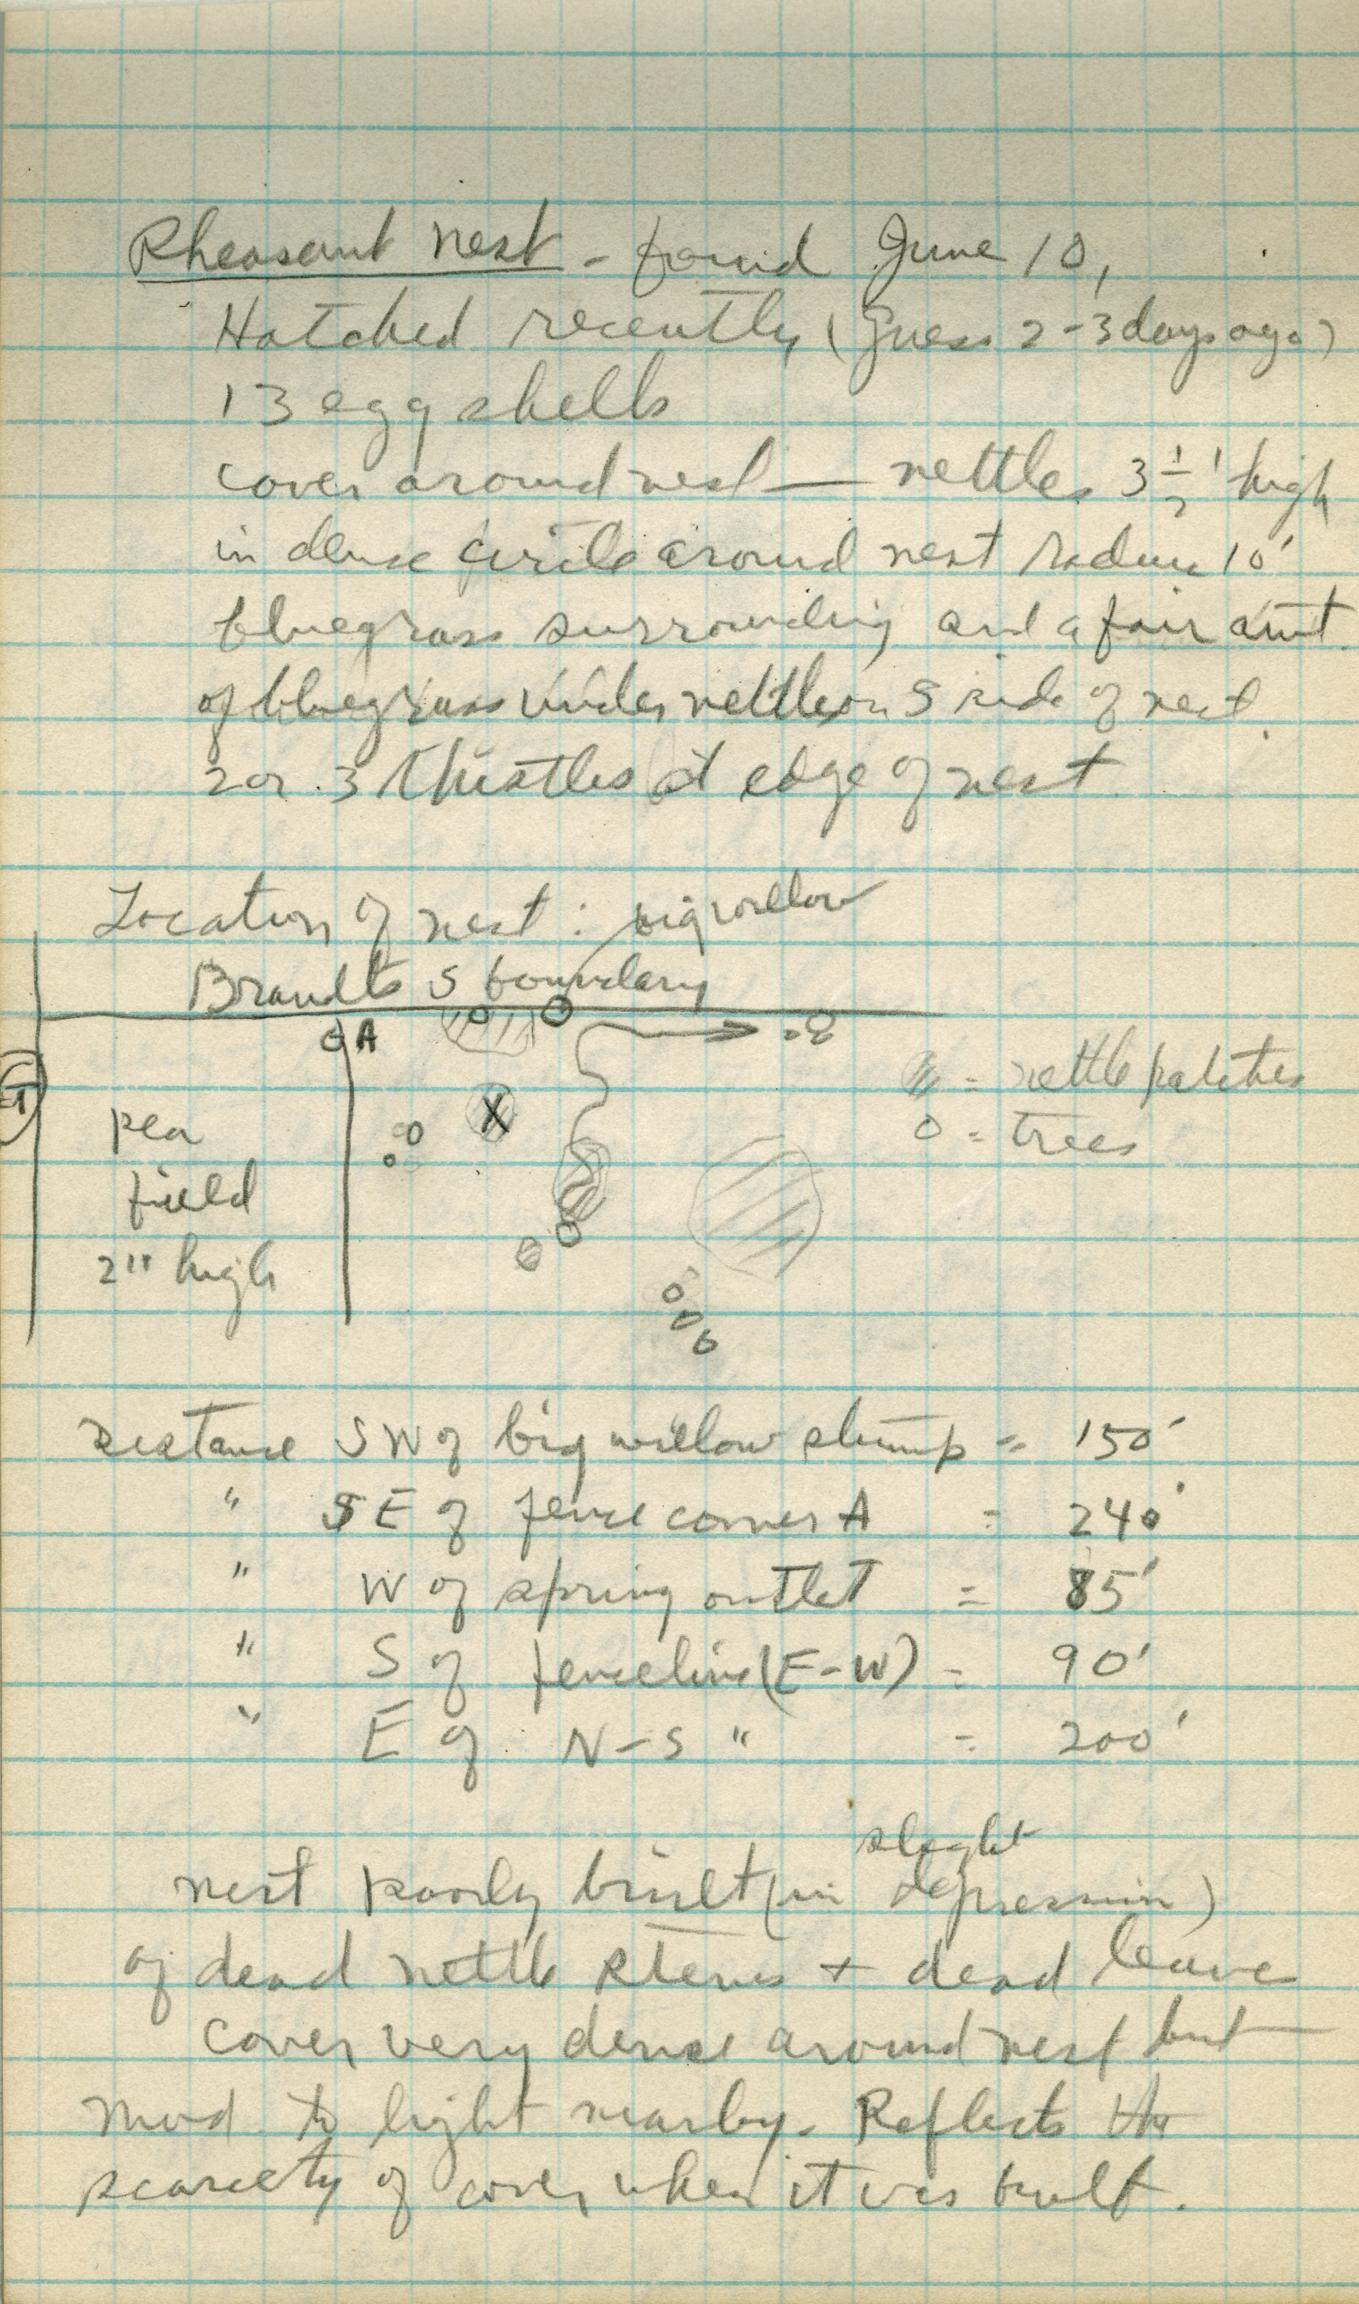 Pheasant nest - found June 10,
Hatched recently (Guess 2-3 days ago)
13 egg shells
cover around nest — nettles 3 1/2' high
in dense circle around nest radius 10'
bluegrass surrounding and a fair amt.
of bluegrass under nettles on S side of nest.
2 or 3 thistles at edge of nest
Location of nest: big willow
Brandts S boundary
A
= nettle patches
X
pea
o = trees
field
2" high
Distance SW of big willow stump = 150'
" SE of fence corner A = 240'
" W of spring outlet = 85'
" S of fenceline (E-W) = 90'
" E of N-S " = 200'
slight
nest poorly built (in depression)
of dead nettle stems + dead leaves
cover very dense around nest but
mod. to light nearby. Reflects the
scarcety of cover when it was built.